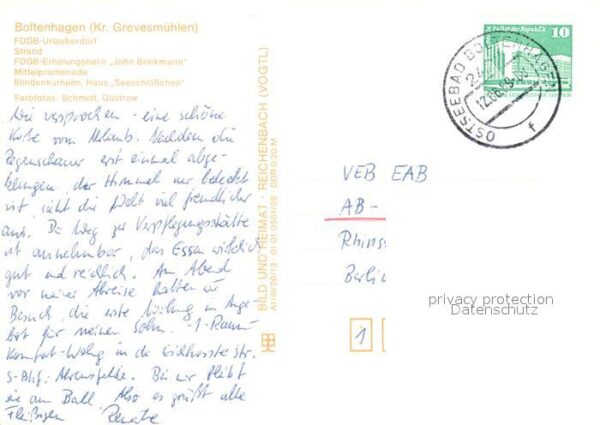 Boltenhagen (Kr. Grevesmühlen)
FDGB-Urlauberdorf
Strand
FDGB-Erholungsheim „John Brinkmann"
Mittelpromenade
Blindenkurheim, Haus „Seeschlößchen"
Farbfotos: Schmidt, Güstrow
Wie versprochen - eine schöne
Karte vom Urlaub. Nachdem die
Regenschauer erst einmal abge-
klungen, der Himmel nur bedeckt
ist, sieht die Welt viel freundlicher
aus. Der Weg zur Verpflegungsstätte
ist annehmbar, das Essen wirklich
gut und reichlich. Am Abend
vor meiner Abreise hatten wir
Besuch, die erste Wohnung im Ange-
bot für meinen Sohn. -1-Raum-
Komfort-Wohng in die Eichhorster Str.
S-Bhf. Ahrensfelde. Bei mir bleibt
sie am Ball. Also es grüßt alle
Fleißigen Renate
BILD UND HEIMAT · REICHENBACH (VOGTL)
A1/III/26/13 01 01 0551/06 DDR 0,20 M
Palast der Republik
10
OSTSEEBAD BOLTENHAGEN
f
VEB EAB
AB-
Rhins
Berlin
1
privacy protection
Datenschutz